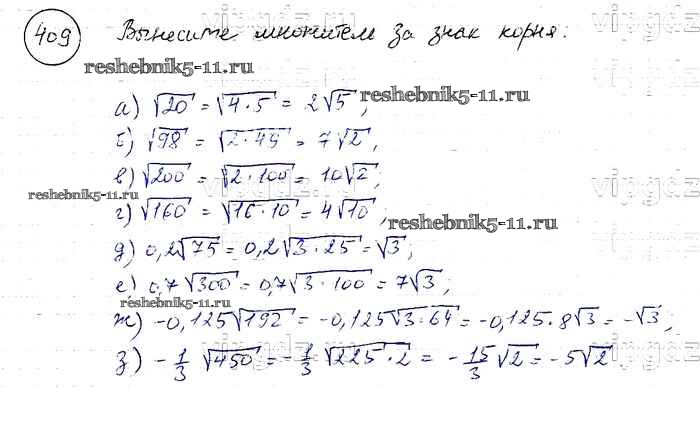 409 Вынесите множитель за знак корня:
reshebnik5-11.ru
vipgdz
а) √20 = √4·5 = 2√5;
reshebnik5-11.ru
б) √98 = √2·49 = 7√2;
в) √200 = √2·100 = 10√2;
reshebnik5-11.ru
vipgdz
г) √160 = √16·10 = 4√10;
reshebnik5-11.ru
д) 0,2√75 = 0,2√3·25 = √3;
е) 0,7√300 = 0,7√3·100 = 7√3;
vipgdz
reshebnik5-11.ru
ж) -0,125√192 = -0,125√3·64 = -0,125·8√3 = -√3;
з) -1/3 √450 = -1/3 √225·2 = -15/3 √2 = -5√2
vipgdz